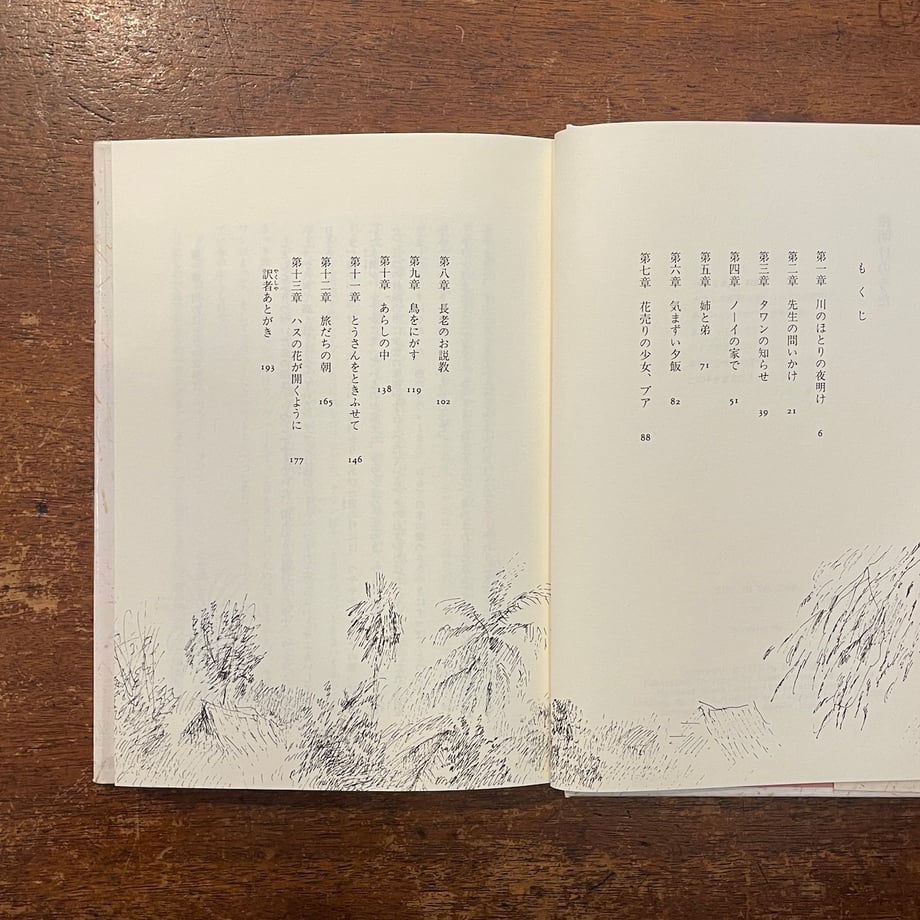 もくじ
第一章 川のほとりの夜明け 6
第二章 先生の問いかけ 21
第三章 タワンの知らせ 39
第四章 ノーイの家で 51
第五章 姉と弟 71
第六章 気まずい夕飯 82
第七章 花売りの少女、プア 88
第八章 長老のお説教 102
第九章 鳥をにがす 119
第十章 あらしの中 138
第十一章 とうさんをときふせて 146
第十二章 旅だちの朝 165
第十三章 ハスの花が開くように 177
やくしゃ
訳者あとがき 193